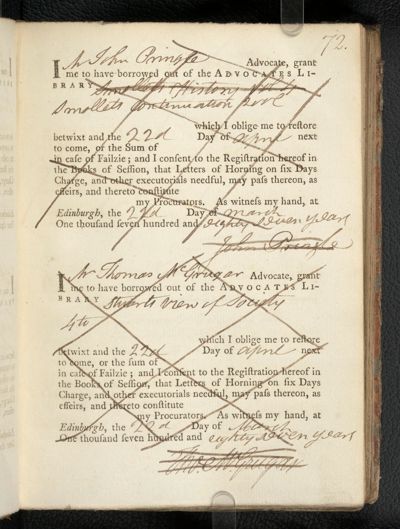 72.
I Mr John Pringle Advocate, grant
me to have borrowed out of the ADVOCATES LI-
BRARY Smollets History
Smollets Continuation
which I oblige me to reſtore
betwixt and the 22d Day of april next
to come, or the Sum of
in caſe of Failzie; and I conſent to the Regiſtration hereof in
the Books of Seſſion, that Letters of Horning on ſix Days
Charge, and other executorials needful, may paſs thereon, as
effeirs, and thereto conſtitute
my Procurators. As witneſs my hand, at
Edinburgh, the 22d Day of march
One thouſand ſeven hundred and eighty seven years
John Pringle
I Mr Thomas McGrugar Advocate, grant
me to have borrowed out of the ADVOCATES LI-
BRARY Stuarts view of Society
4to
which I oblige me to reſtore
betwixt and the 22d Day of april next
to come, or the ſum of
in caſe of Failzie; and I conſent to the Regiſtration hereof in
the Books of Seſſion, that Letters of Horning on ſix Days
Charge, and other executorials needful, may paſs thereon, as
effeirs, and thereto conſtitute
my Procurators. As witneſs my hand, at
Edinburgh, the 22d Day of March
One thouſand ſeven hundred and eighty seven years
Tho. McGrugar